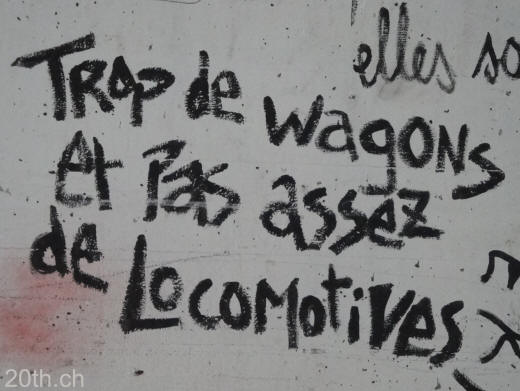 elles so
TROP de wagons
et Pas assez
de Locomotives
20th.ch